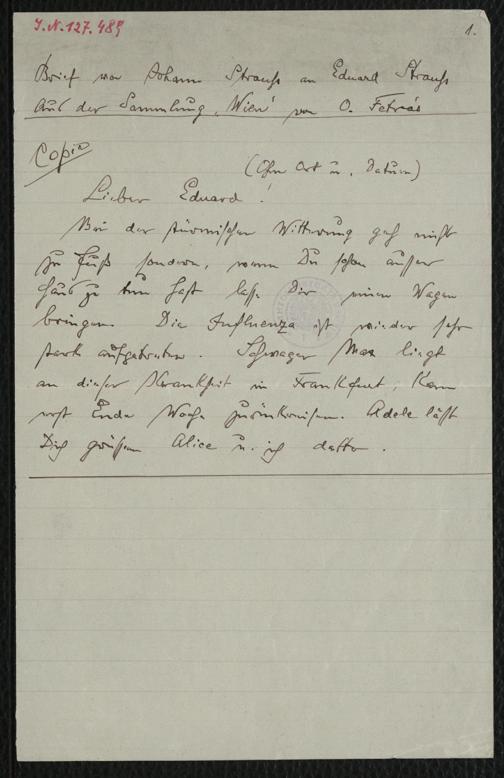 J.N. 127.489
1.
Brief von Johann Strauss an Eduard Strauss
Aus der Sammlung „Wien" von O. Fetrás
Copie
(Ohne Ort u. Datum)
Lieber Eduard!
Bei der stürmischen Witterung geh nicht
zu Fuß sondern, wenn Du schon ausser
Haus zu tun hast lass Dir einen Wagen
bringen. Die Influenza ist wieder sehr
stark aufgetreten. Schwager Max liegt
an dieser Krankheit in Frankfurt, kann
erst Ende Woche zurückreisen. Adele lässt
Dich grüssen Alice u. ich detto.